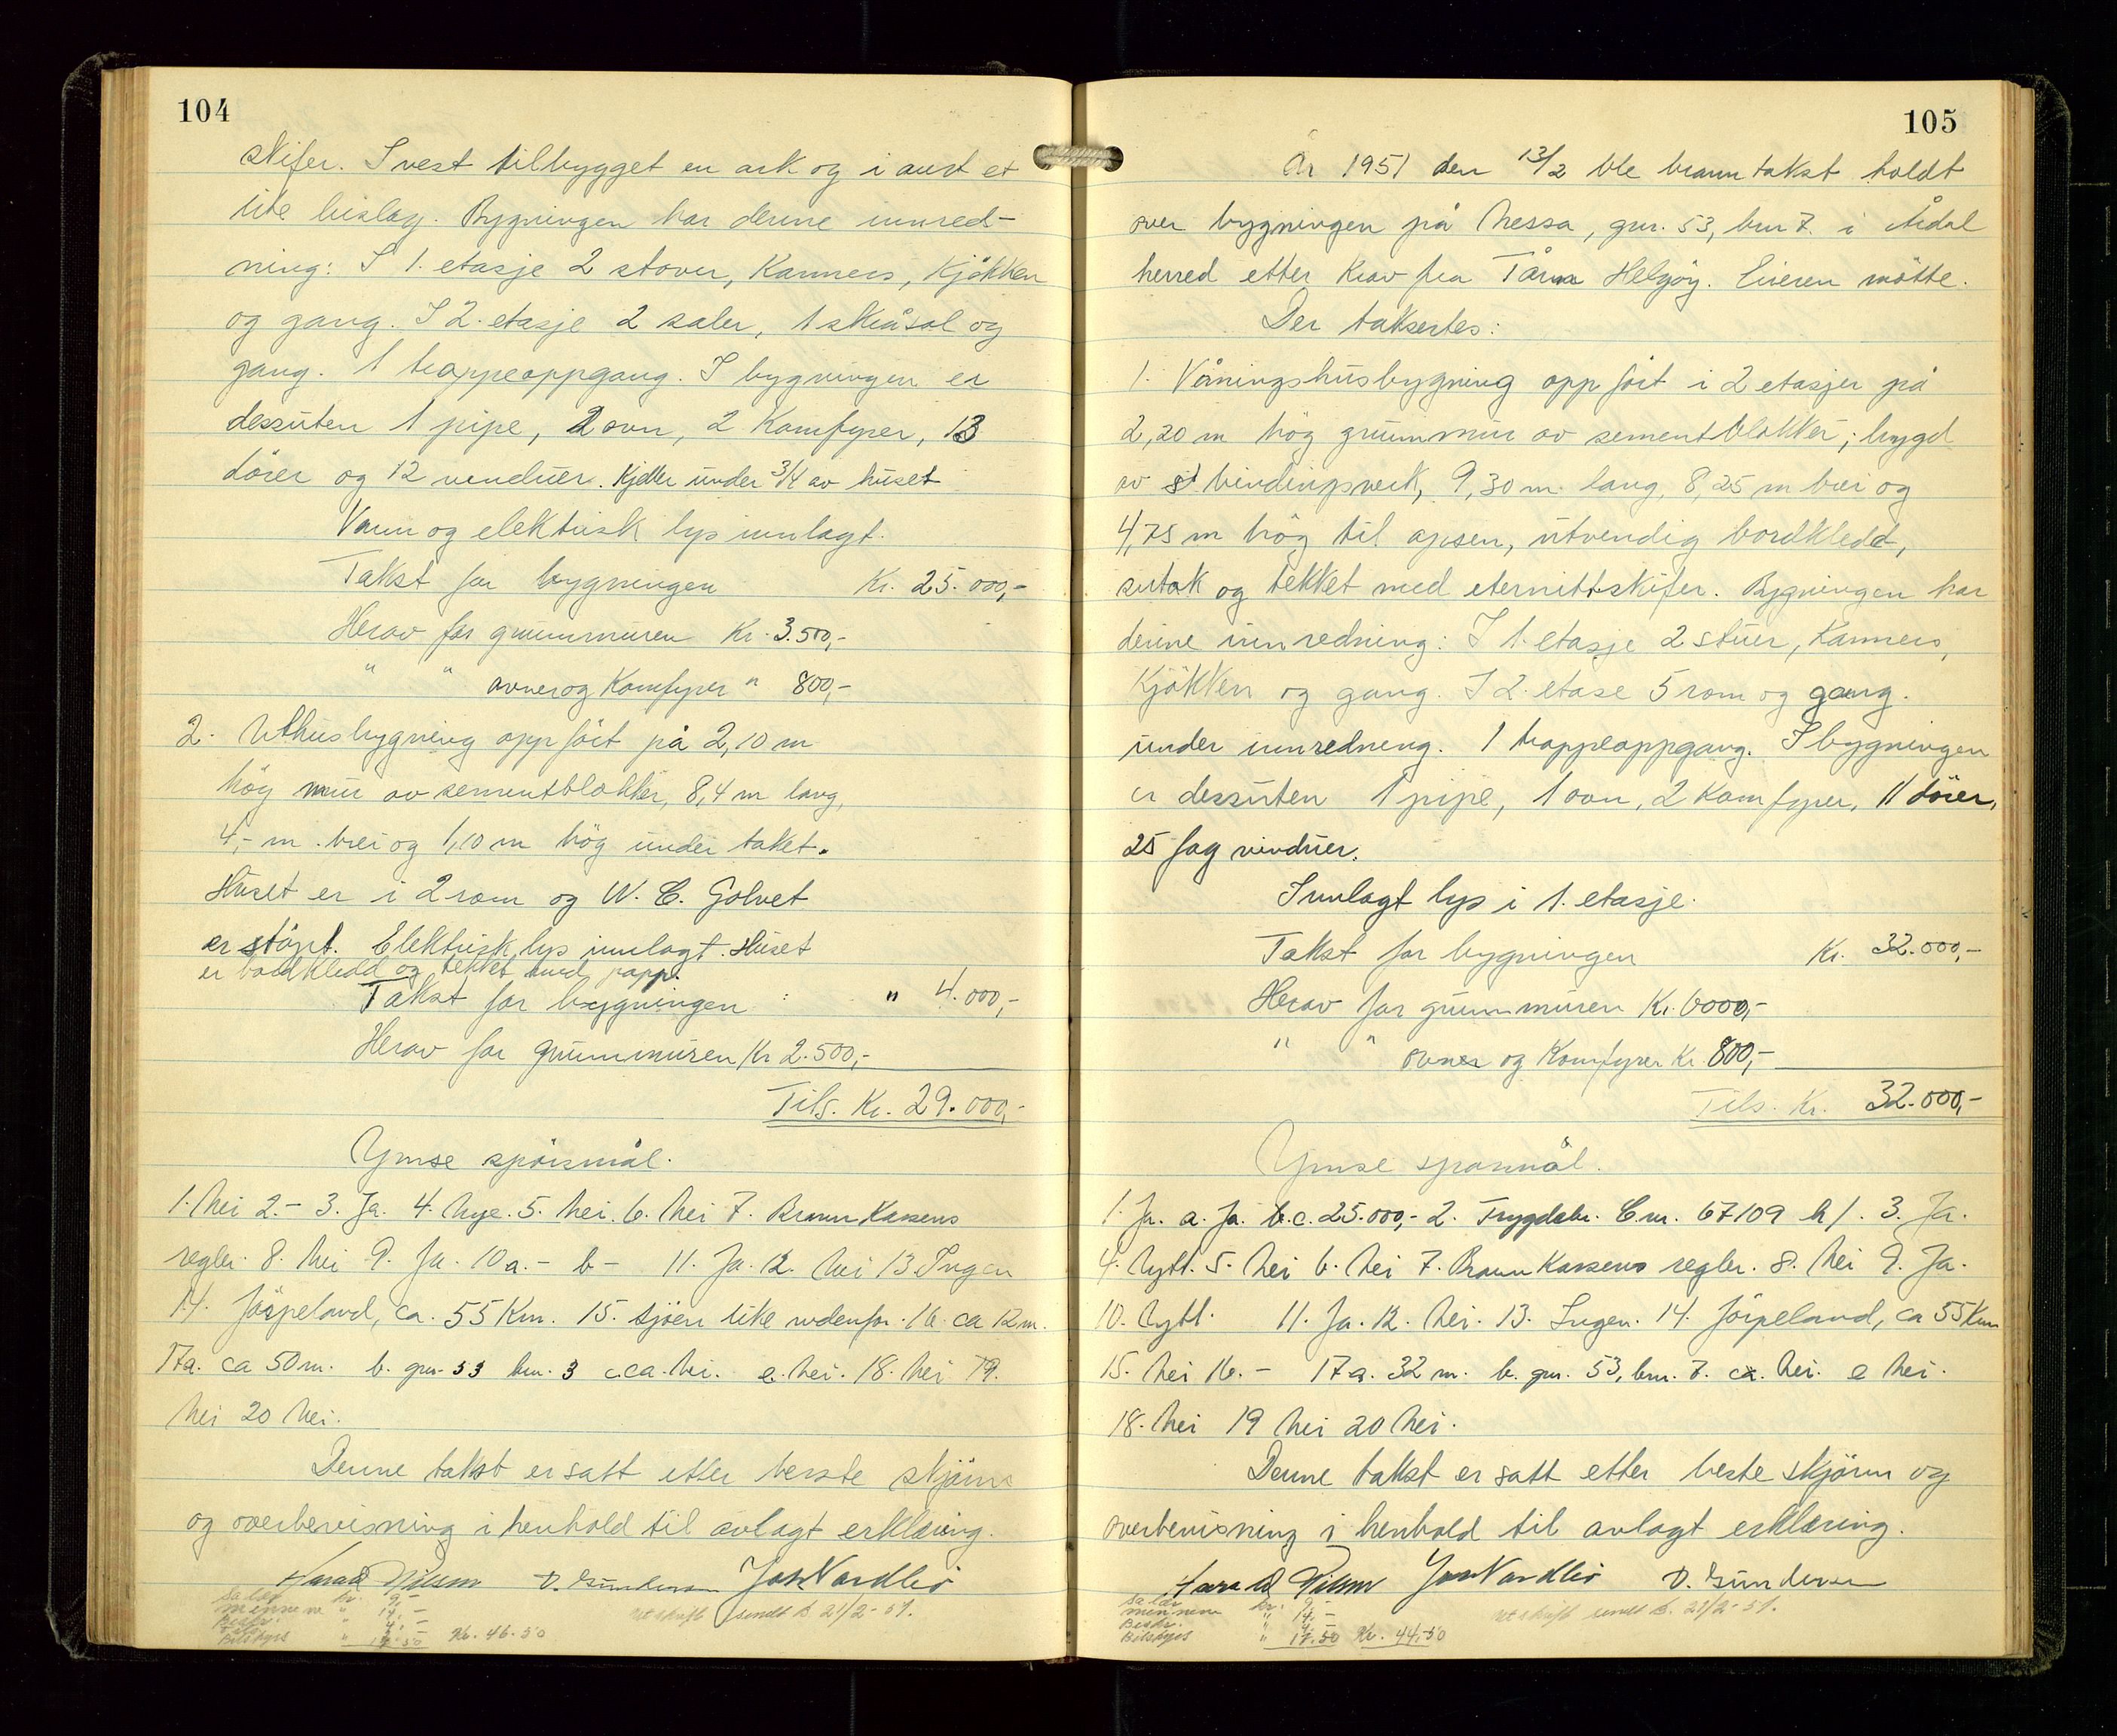 104
skifer. I vest tilbygget en ark og i aust et
lite bislag. Bygningen har denne innred-
ning: I 1. etasje 2 stover, Kammers, Kjøkken
og gang. I 2. etasje 2 saler, 1 skråsal og
gang. 1 trappeoppgang. I bygningen er
dessuten 1 pipe, 2 ovn, 2 Komfyrer, 13
dörer og 12 vinduer. Kjeller under 3/4 av huset
Vann og elektrisk lys innlagt.
Takst for bygningen Kr. 25.000,-
Herav for grunnmuren Kr. 3.500,-
" " ovner og Komfyrer " 800,-
2. Uthusbygning oppfört på 2,10 m
hög mur av sementblokker, 8,4 m lang,
4,- m. brei og 1,10 m hög under taket.
Huset er i 2 rom og W.C. Golvet
er støpt. Elektrisk lys innlagt. Huset
er bordkledd og tekket med papp.
Takst for bygningen : " 4.000,-
Herav for grunnmuren Kr 2.500,-
Tils. Kr. 29.000,-
Ymse spörsmål.
1. Nei 2.- 3. Ja. 4. Nye. 5. Nei. 6. Nei 7. Brannkassens
regler. 8. Nei 9. Ja. 10 a.- b- 11. Ja. 12. Nei 13 Ingen
14. Jörpeland, ca. 55 Km. 15. Sjöen like nedenfor. 16. ca 12 m.
17a. ca 50 m. b. gnr. 53 bnr. 3 c.ca. Nei. e. Nei. 18. Nei 19.
Nei 20 Nei.
Denne takst er satt etter beste skjönn
og overbevisning i henhold til avlagt erklæring.
Harald Nilsen O. Gundersen Jon Nordbö
Salær kr. 9,-
mennene " 14,-
Beskr. " 4,-
Bilskyss " 17.50 Kr. 46.50
Utskrift sendt d. 21/2-51.
105
År 1951 den 13/2 ble branntakst holdt
over bygningen på Nessa, gnr. 53, bnr 7. i Årdal
herred etter Krav fra Tårn Helgöy. Eieren mötte.
Der taksertes:
1. Våningshusbygning oppfört i 2 etasjer på
2,20 m hög grunnmur av sementblokker; bygd
av bindingsverk, 9,30 m. lang, 8,25 m brei og
4,75 m hög til opsen, utvendig bordkledd,
sutak og tekket med eternittskifer. Bygningen har
denne innredning: I 1. etasje 2 stuer, Kammers,
Kjökken og gang. I 2. etase 5 rom og gang.
under innredneng. 1 trappeoppgang. I bygningen
er dessuten 1 pipe, 1 ovn, 2 Komfyrer, 11 dörer,
25 fag vinduer.
Innlagt lys i 1. etasje.
Takst for bygningen Kr. 32.000,-
Herav for grunnmuren Kr. 6000,-
" " ovner og Komfyrer Kr. 800,-
Tils. Kr. 32.000,-
Ymse sporsmål.
1. Ja. a. Ja. b.c. 25.000,- 2. Trygdebr. C.nr. 67109 h/. 3. Ja.
4. Nytt. 5. Nei 6. Nei 7. Brannkassens regler. 8. Nei 9. Ja.
10. Nytt. 11. Ja. 12. Nei. 13. Ingen. 14. Jörpeland, ca 55 Km
15. Nei 16. - 17 a. 32 m. b. gnr. 53, bnr. 7. ca. Nei. e Nei.
18. Nei 19 Nei 20 Nei.
Denne takst er satt etter beste skjönn og
overbevisning i henhold til avlagt erklæring.
Harald Nilsen Jon Nordbö O. Gundersen
Salær kr. 9,-
mennene " 14,-
Beskr. " 4,-
Bilskyss " 17.50 Kr. 44.50
Utskrift sendt d. 21/2-51.